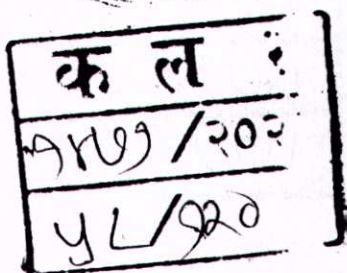 क ल :
१४७१ /२०२
५८/१२०